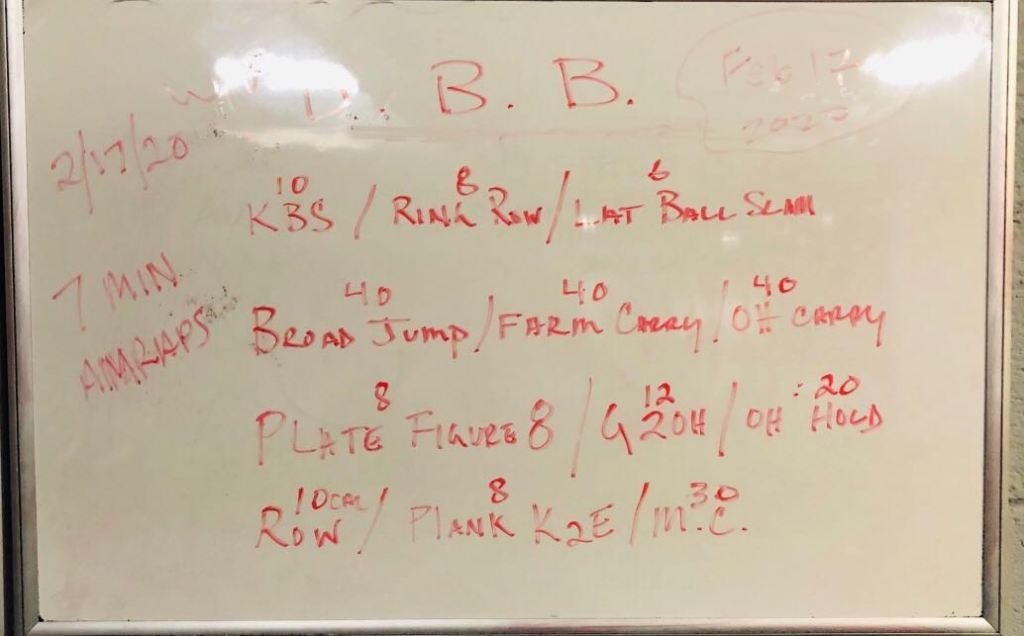 D. B. B.
Feb 17
2020
2/17/20
10 8 6
KBS / RING ROW / LAT BALL SLAM
7 MIN
AMRAPS
40 40 40
BROAD JUMP / FARM CARRY / OH CARRY
8 12 :20
PLATE FIGURE 8 / G2OH / OH HOLD
10 CAL 8 30
ROW / PLANK K2E / M.C.